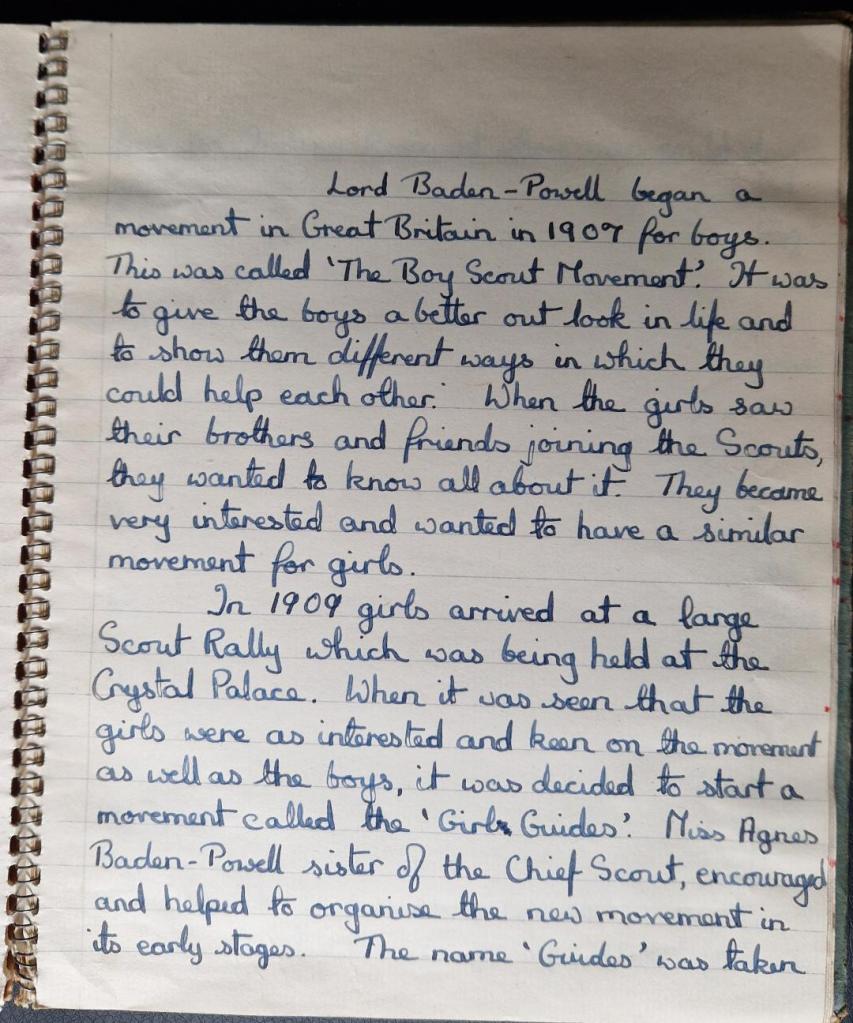 Lord Baden-Powell began a
movement in Great Britain in 1907 for boys.
This was called 'The Boy Scout Movement'. It was
to give the boys a better out look in life and
to show them different ways in which they
could help each other. When the girls saw
their brothers and friends joining the Scouts,
they wanted to know all about it. They became
very interested and wanted to have a similar
movement for girls.
In 1909 girls arrived at a large
Scout Rally which was being held at the
Crystal Palace. When it was seen that the
girls were as interested and keen on the movement
as well as the boys, it was decided to start a
movement called the 'Girl Guides'. Miss Agnes
Baden-Powell sister of the Chief Scout, encouraged
and helped to organise the new movement in
its early stages. The name 'Guides' was taken